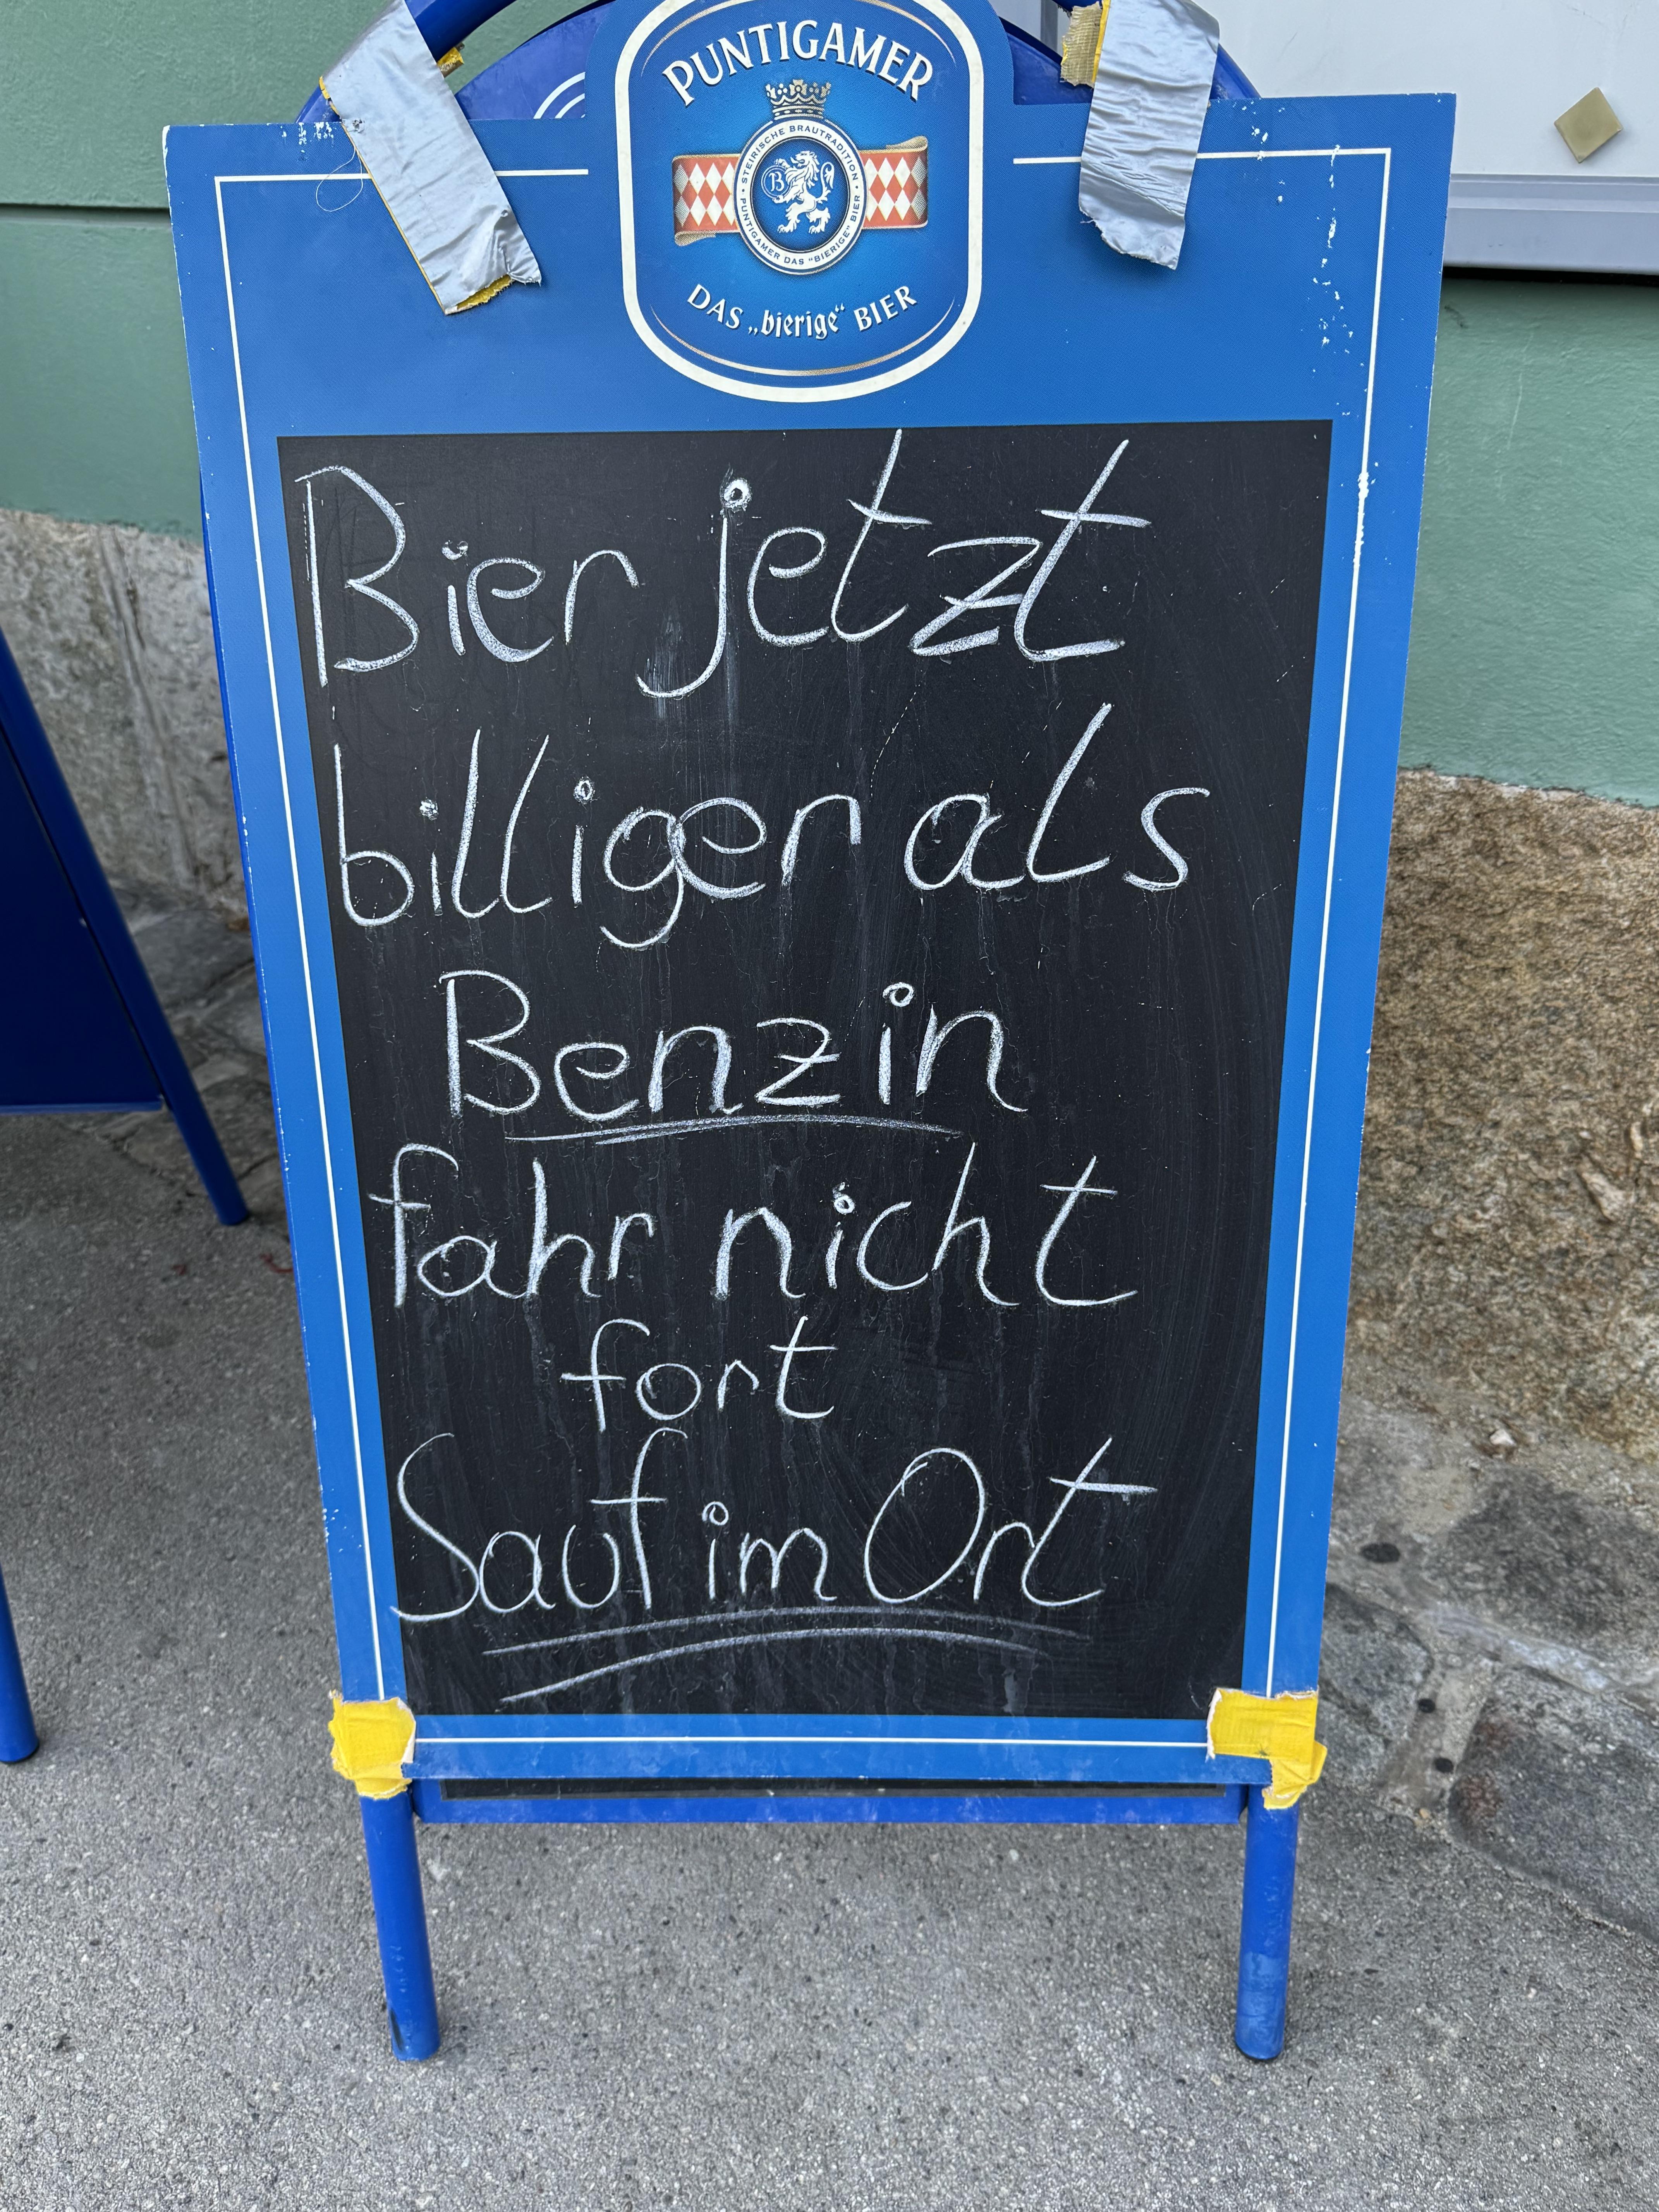 PUNTIGAMER
STEIRISCHE BRAUTRADITION
B
PUNTIGAMER DAS "BIERIGE" BIER
DAS „bierige“ BIER
Bier jetzt
billiger als
Benzin
fahr nicht
fort
Sauf im Ort